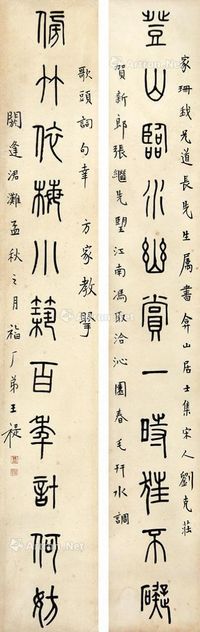 家珊我兄道長先生屬書弇山居士集宋人劉克莊
登山臨水幽賞一時狂不礙
賀新郎張繼先望江南馮取洽沁園春毛幵水調
歌頭詞句幸 方家教
傍竹依梅小築百年計何妨
閼逢涒灘孟秋之月福厂弟王禔